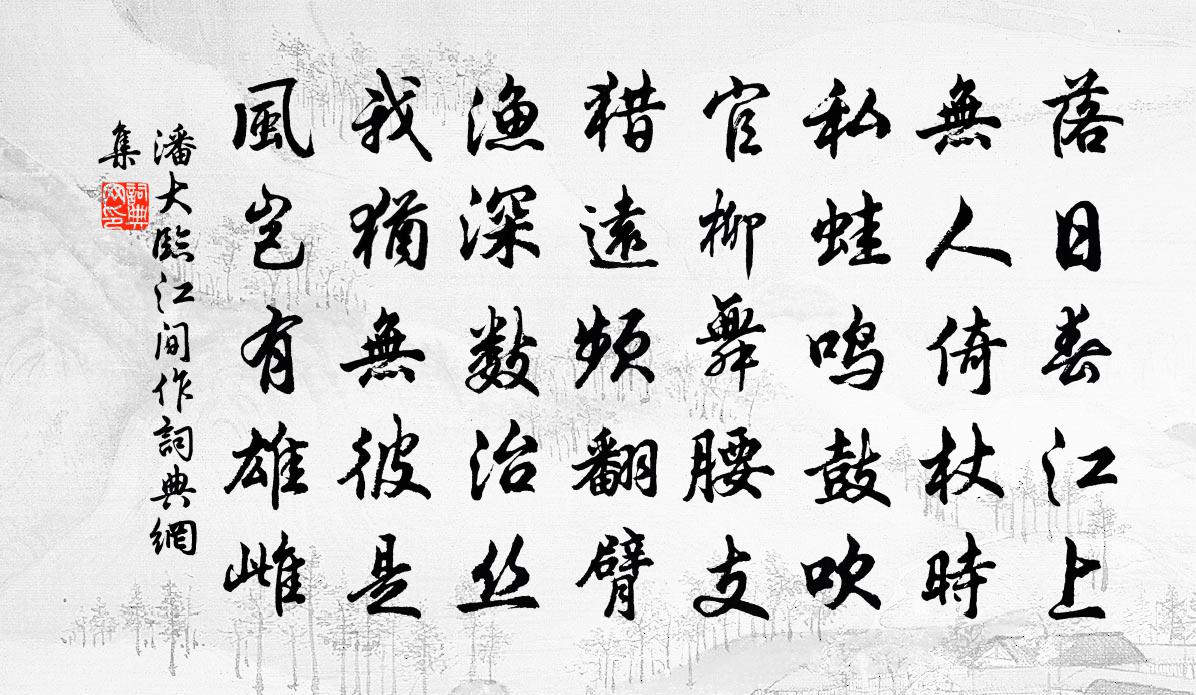 落日春江上
無人倚杖時
私蛙鳴鼓吹
官柳舞腰支
猎遠頻翻臂
漁深數治丝
我猶無彼是
風岂有雄雌
潘大臨江间作詞典網
集
詞典
网印